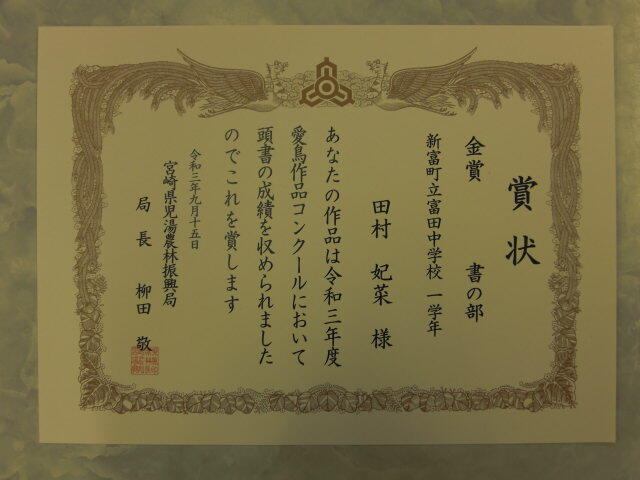 賞状
金賞　書の部
新富町立富田中学校 一学年
田村 妃菜 様
あなたの作品は令和三年度
愛鳥作品コンクールにおいて
頭書の成績を収められました
のでこれを賞します
令和三年九月十五日
宮崎県児湯農林振興局
局長 柳田 敬